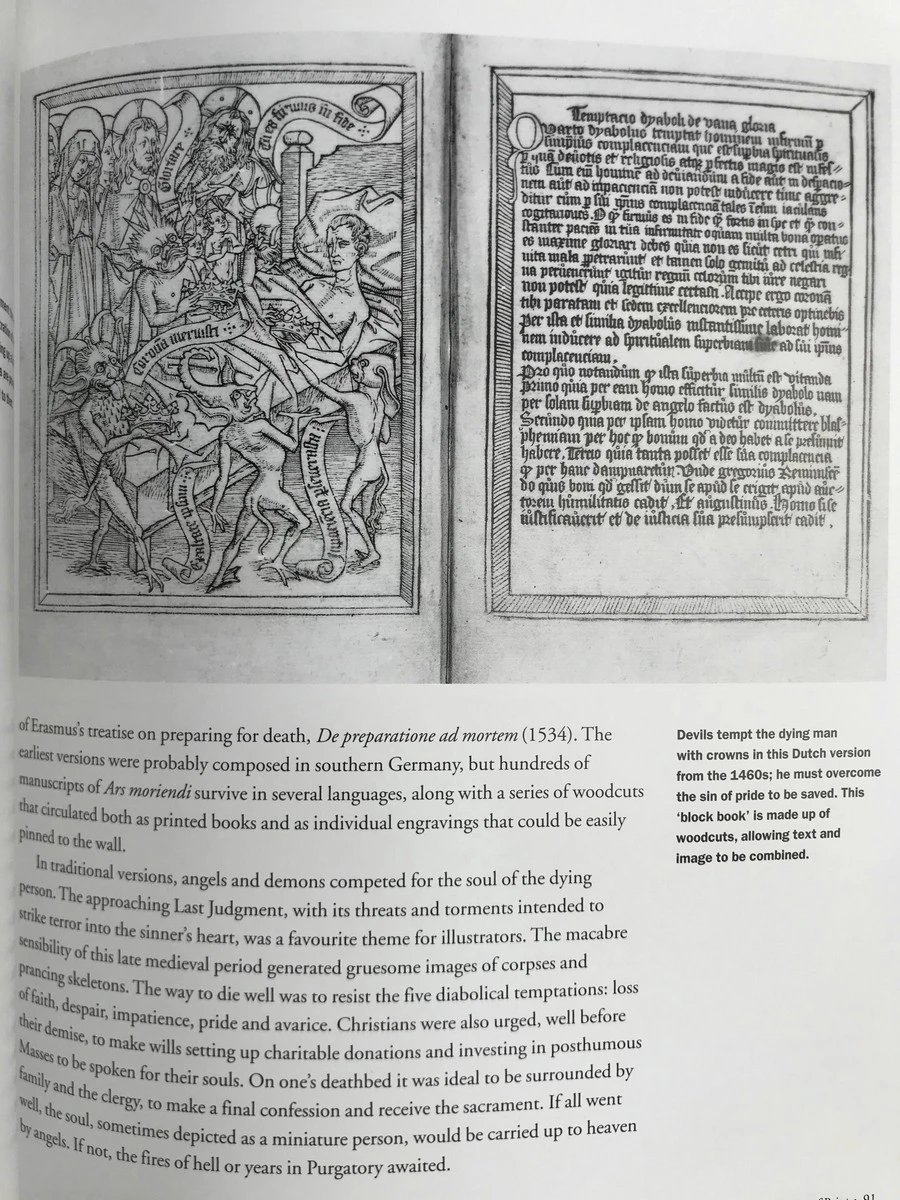 Gloriare
Tu es firmus in fide
Corona meruisti
Exaltate ip̄m
Temptacio dyaboli de vana gloria
Quarto dyabolus temptat hominem infirmū p
sui ipsius complacenciam que est supbia spiritualis
p quā deuotis et religiosis atqꝫ pfectis magis est infes-
tus Cum em̄ hominē ad deuiandum a fide aut in despacio-
nem aut ad impacienciā non potest inducere tunc aggre-
ditur eum p sui ipius complacenciā tales in eum iaculans
cogitationes. O qꝫ firmus es in fide qꝫ fortis in spe et qꝫ con-
stanter paciēs in tua infirmitate o quam multa bona opatus
es maxime gloriari debes quia non es sicut ceteri qui infi-
nita mala ppetrarunt et tamen solo gemitu ad celestia reg
na peruenerunt igitur regnū celorum tibi iure negari
non potest quia legittime certasti Accipe ergo coronā
tibi paratam et sedem excellenciorem pre ceteris optinebis
Per ista et similia dyabolus instantissime laborat homi-
nem inducere ad spiritualem superbiam ad sui ipius
complacenciam.
Pro quo notandum qꝫ ista superbia multū est vitanda
Primo quia per eam homo efficitur similis dyabolo nam
per solam supbiam de angelo factus est dyabolus.
Secundo quia per ipsam homo videtur committere blas-
phemiam per hoc qꝫ bonum qd a deo habet a se presumit
habere. Tercio quia tanta posset esse sua complacencia
qꝫ per hanc dampnaretur Vnde gregorius Reminiscē
do quis boni qd gessit dum se apud se erigit apud auc-
torem humilitatis cadit. Et augustinus. Homo si se
iustificauerit et de iusticia sua presumpserit cadit.
of Erasmus's treatise on preparing for death, De preparatione ad mortem (1534). The
earliest versions were probably composed in southern Germany, but hundreds of
manuscripts of Ars moriendi survive in several languages, along with a series of woodcuts
that circulated both as printed books and as individual engravings that could be easily
pinned to the wall.
In traditional versions, angels and demons competed for the soul of the dying
person. The approaching Last Judgment, with its threats and torments intended to
strike terror into the sinner's heart, was a favourite theme for illustrators. The macabre
sensibility of this late medieval period generated gruesome images of corpses and
prancing skeletons. The way to die well was to resist the five diabolical temptations: loss
of faith, despair, impatience, pride and avarice. Christians were also urged, well before
their demise, to make wills setting up charitable donations and investing in posthumous
Masses to be spoken for their souls. On one's deathbed it was ideal to be surrounded by
family and the clergy, to make a final confession and receive the sacrament. If all went
well, the soul, sometimes depicted as a miniature person, would be carried up to heaven
by angels. If not, the fires of hell or years in Purgatory awaited.
Devils tempt the dying man
with crowns in this Dutch version
from the 1460s; he must overcome
the sin of pride to be saved. This
'block book' is made up of
woodcuts, allowing text and
image to be combined.
91